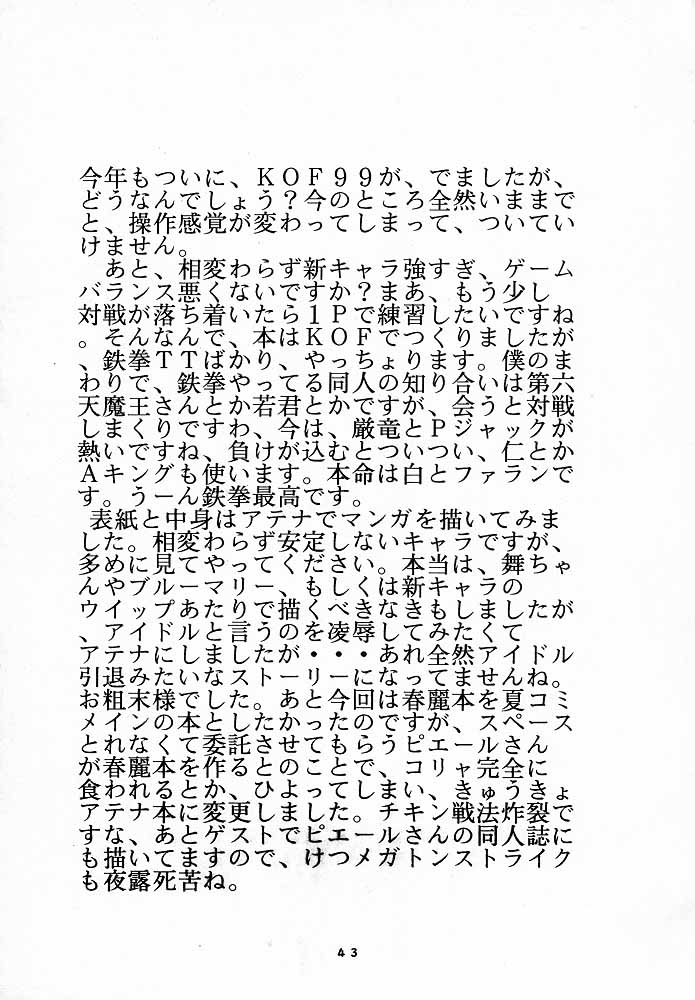 今年もついに、ＫＯＦ９９が、でましたが、
どうなんでしょう？今のところ全然いままで
と、操作感覚が変わってしまって、ついてい
けません。
　あと、相変わらず新キャラ強すぎ、ゲーム
バランス悪くないですか？まあ、もう少し
対戦が落ち着いたら１Ｐで練習したいですね
。そんなんで、本はＫＯＦでつくりましたが
、鉄拳ＴＴばかり、やっちょります。僕のま
わりで、鉄拳やってる同人の知り合いは第六
天魔王さんとか若君とかですが、会うと対戦
しまくりですわ、今は、厳竜とＰジャックが
熱いですね、負けが込むとついつい、仁とか
Ａキングも使います。本命は白とファランで
す。うーん鉄拳最高です。
　表紙と中身はアテナでマンガを描いてみま
した。相変わらず安定しないキャラですが、
多めに見てやってください。本当は、舞ちゃ
んやブルーマリー、もしくは新キャラの
ウイップあたりで描くべきなきもしましたが
、アイドルと言うのを凌辱してみたくて
アテナにしましたが・・・あれ全然アイドル
引退みたいなストーリーになってませんね。
お粗末様でした。あと今回は春麗本を夏コミ
メインの本としたかったのですが、スペース
とれなくて委託させてもらうピエールさん
が春麗本を作るとのことで、コリャ完全に
食われるとか、ひよってしまい、きゅうきょ
アテナ本に変更しました。チキン戦法炸裂で
すな、あとゲストでピエールさんの同人誌に
も描いてますので、けつメガトンストライク
も夜露死苦ね。
４３